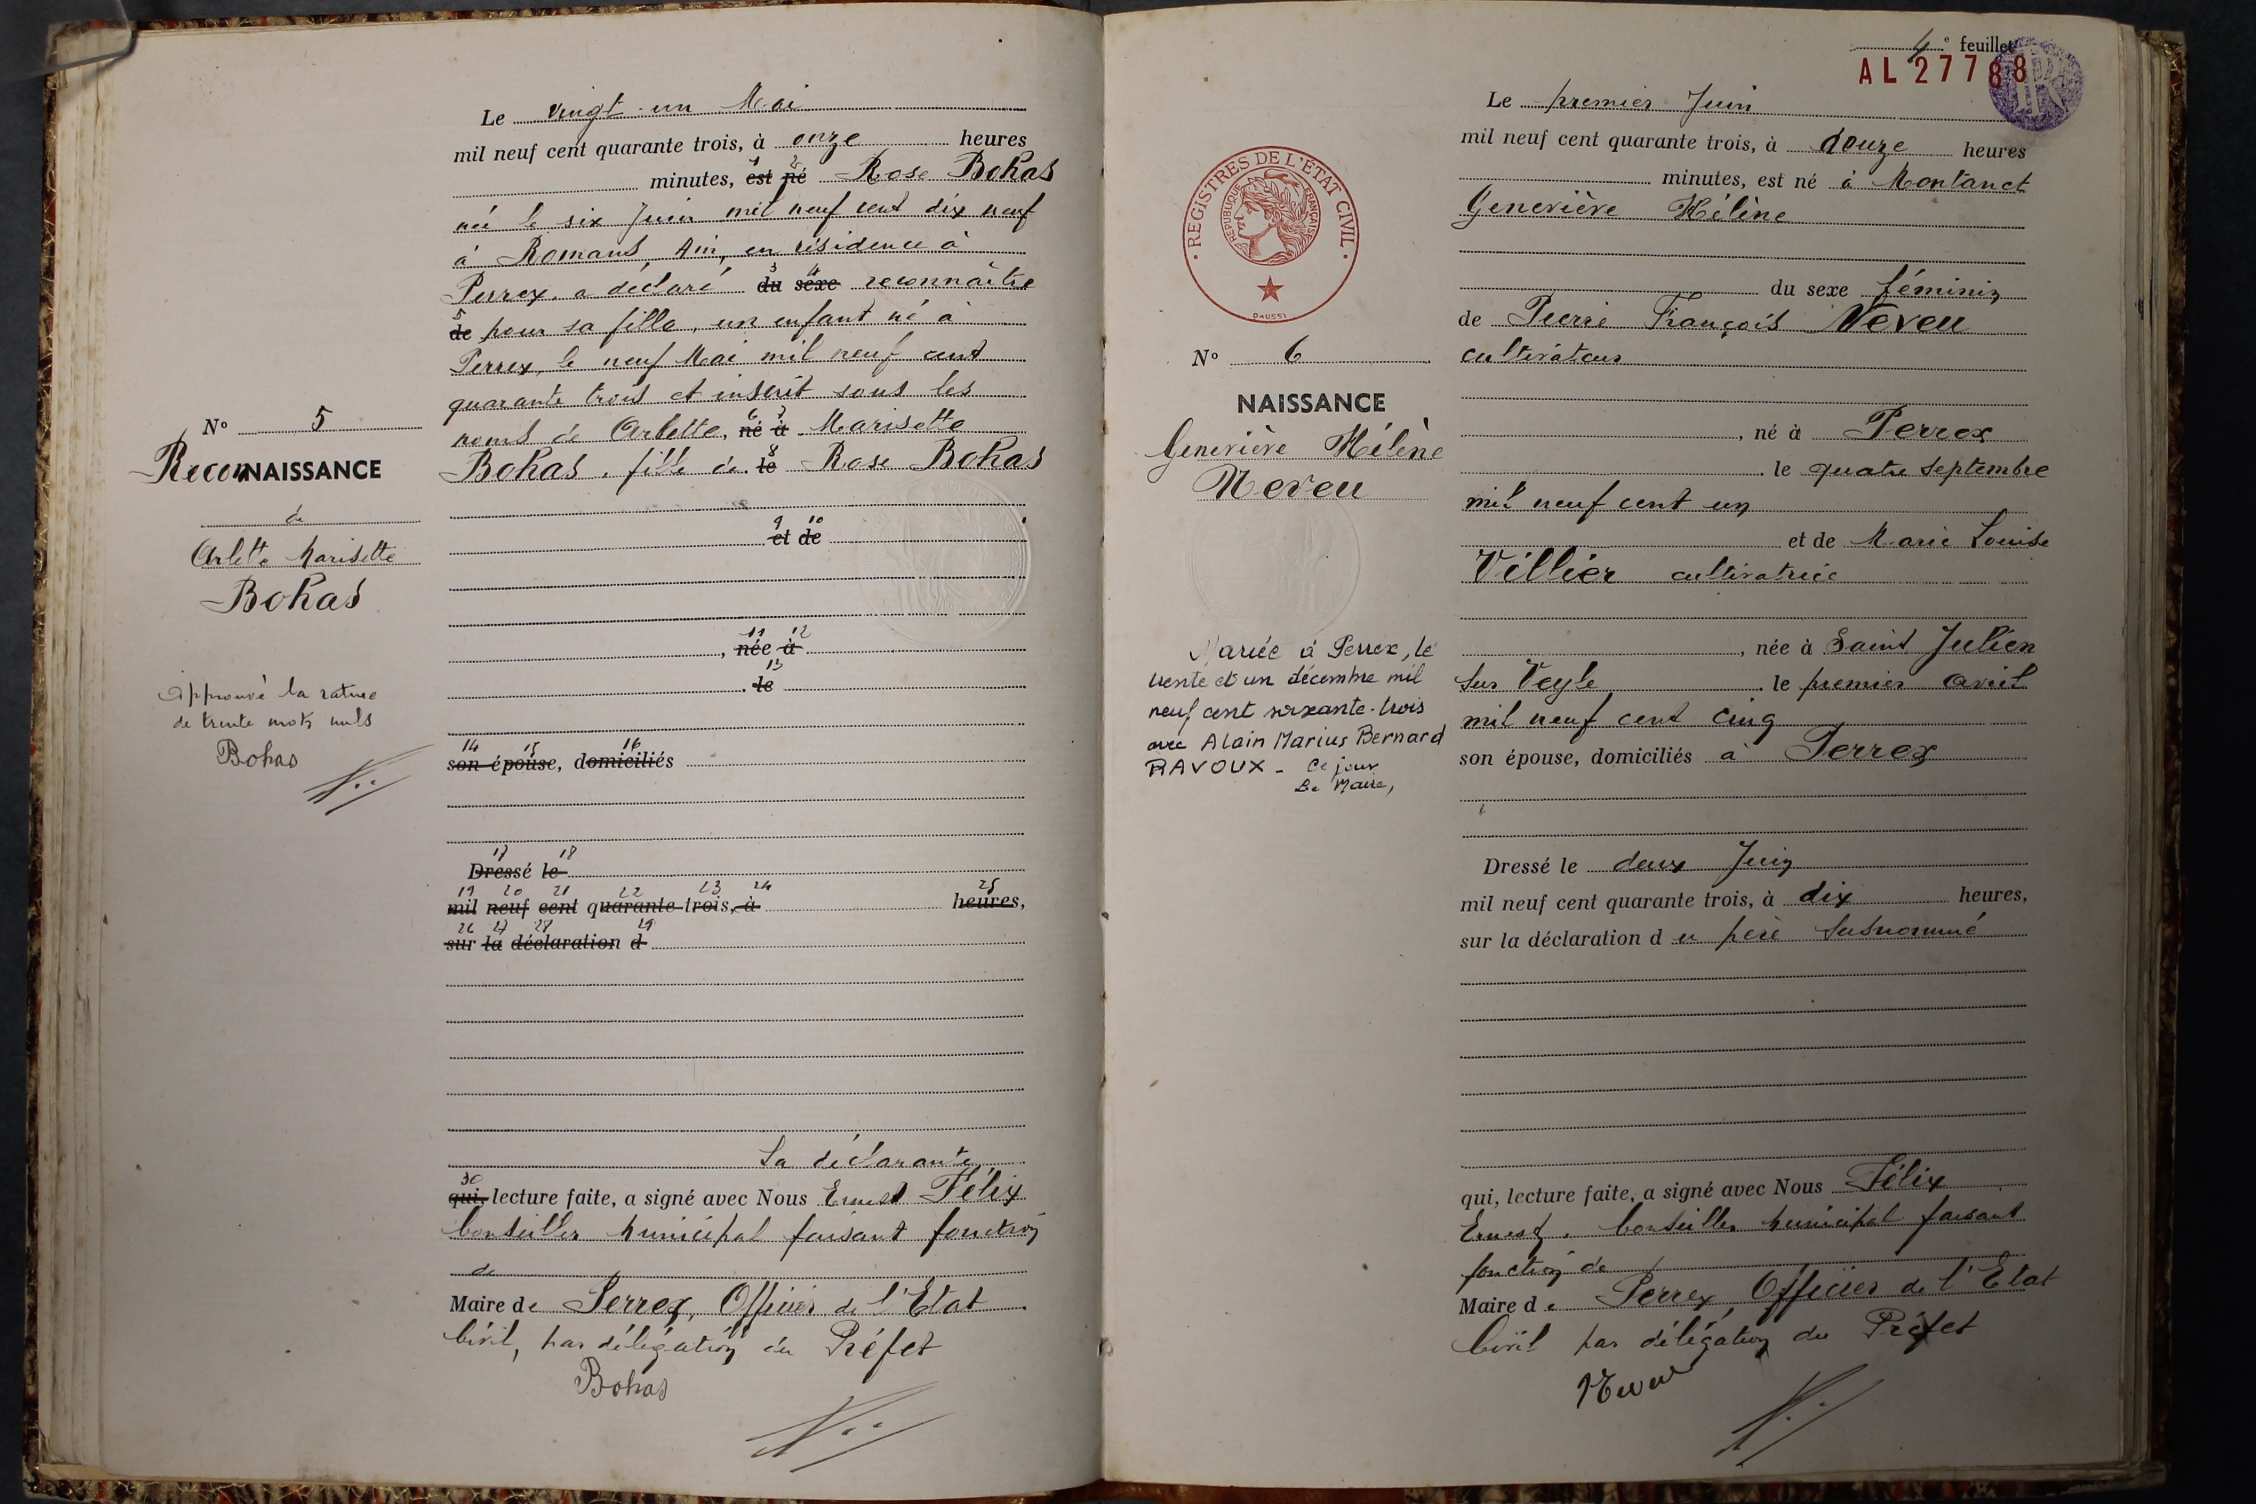 Le vingt un Mai
mil neuf cent quarante trois, à onze heures
1 2
minutes, est né Rose Bohas
née le six Juin mil neuf cent dix neuf
à Romans, Ain, en résidence à
3 4
Perrex, a déclaré du sexe reconnaître
5
de pour sa fille, un enfant né à
Perrex, le neuf Mai mil neuf cent
quarante trois et inscrit sous les
6 7
noms de Arlette, né à Marisette
8
Bohas, fille de le Rose Bohas
9 10
et de
11 12
, née à
13
, le
14 15 16
son épouse, domiciliés
17 18
Dressé le
19 20 21 22 23 24 25
mil neuf cent quarante trois, à heures,
26 27 28 29
sur la déclaration d
La déclarante
30
qui, lecture faite, a signé avec Nous Ernest Félix
Conseiller Municipal faisant fonction
de
Maire de Perrex, Officier de l'Etat
Civil, par délégation du Préfet
Bohas
N° 5
RecoNNAISSANCE
de
Arlette Marisette
Bohas
Approuvé la rature
de trente mots nuls
Bohas
4e feuillet
AL 27788
REGISTRES DE L'ÉTAT CIVIL
RÉPUBLIQUE FRANÇAISE
DAUSSI
N° 6
NAISSANCE
Geneviève Hélène
Neveu
Mariée à Perrex, le
trente et un décembre mil
neuf cent soixante-trois
avec Alain Marius Bernard
RAVOUX - Ce jour
Le Maire,
Le premier Juin
mil neuf cent quarante trois, à douze heures
minutes, est né à Montanet
Geneviève Hélène
du sexe féminin
de Pierre François Neveu
cultivateur
, né à Perrex
, le quatre septembre
mil neuf cent un
et de Marie Louise
Villier cultivatrice
, née à Saint Julien
sur Veyle, le premier avril
mil neuf cent cinq
son épouse, domiciliés à Perrex
Dressé le deux Juin
mil neuf cent quarante trois, à dix heures,
sur la déclaration du père susnommé
qui, lecture faite, a signé avec Nous Félix
Ernest, Conseiller Municipal faisant
fonction de
Maire de Perrex, Officier de l'Etat
Civil par délégation du Préfet
Neveu